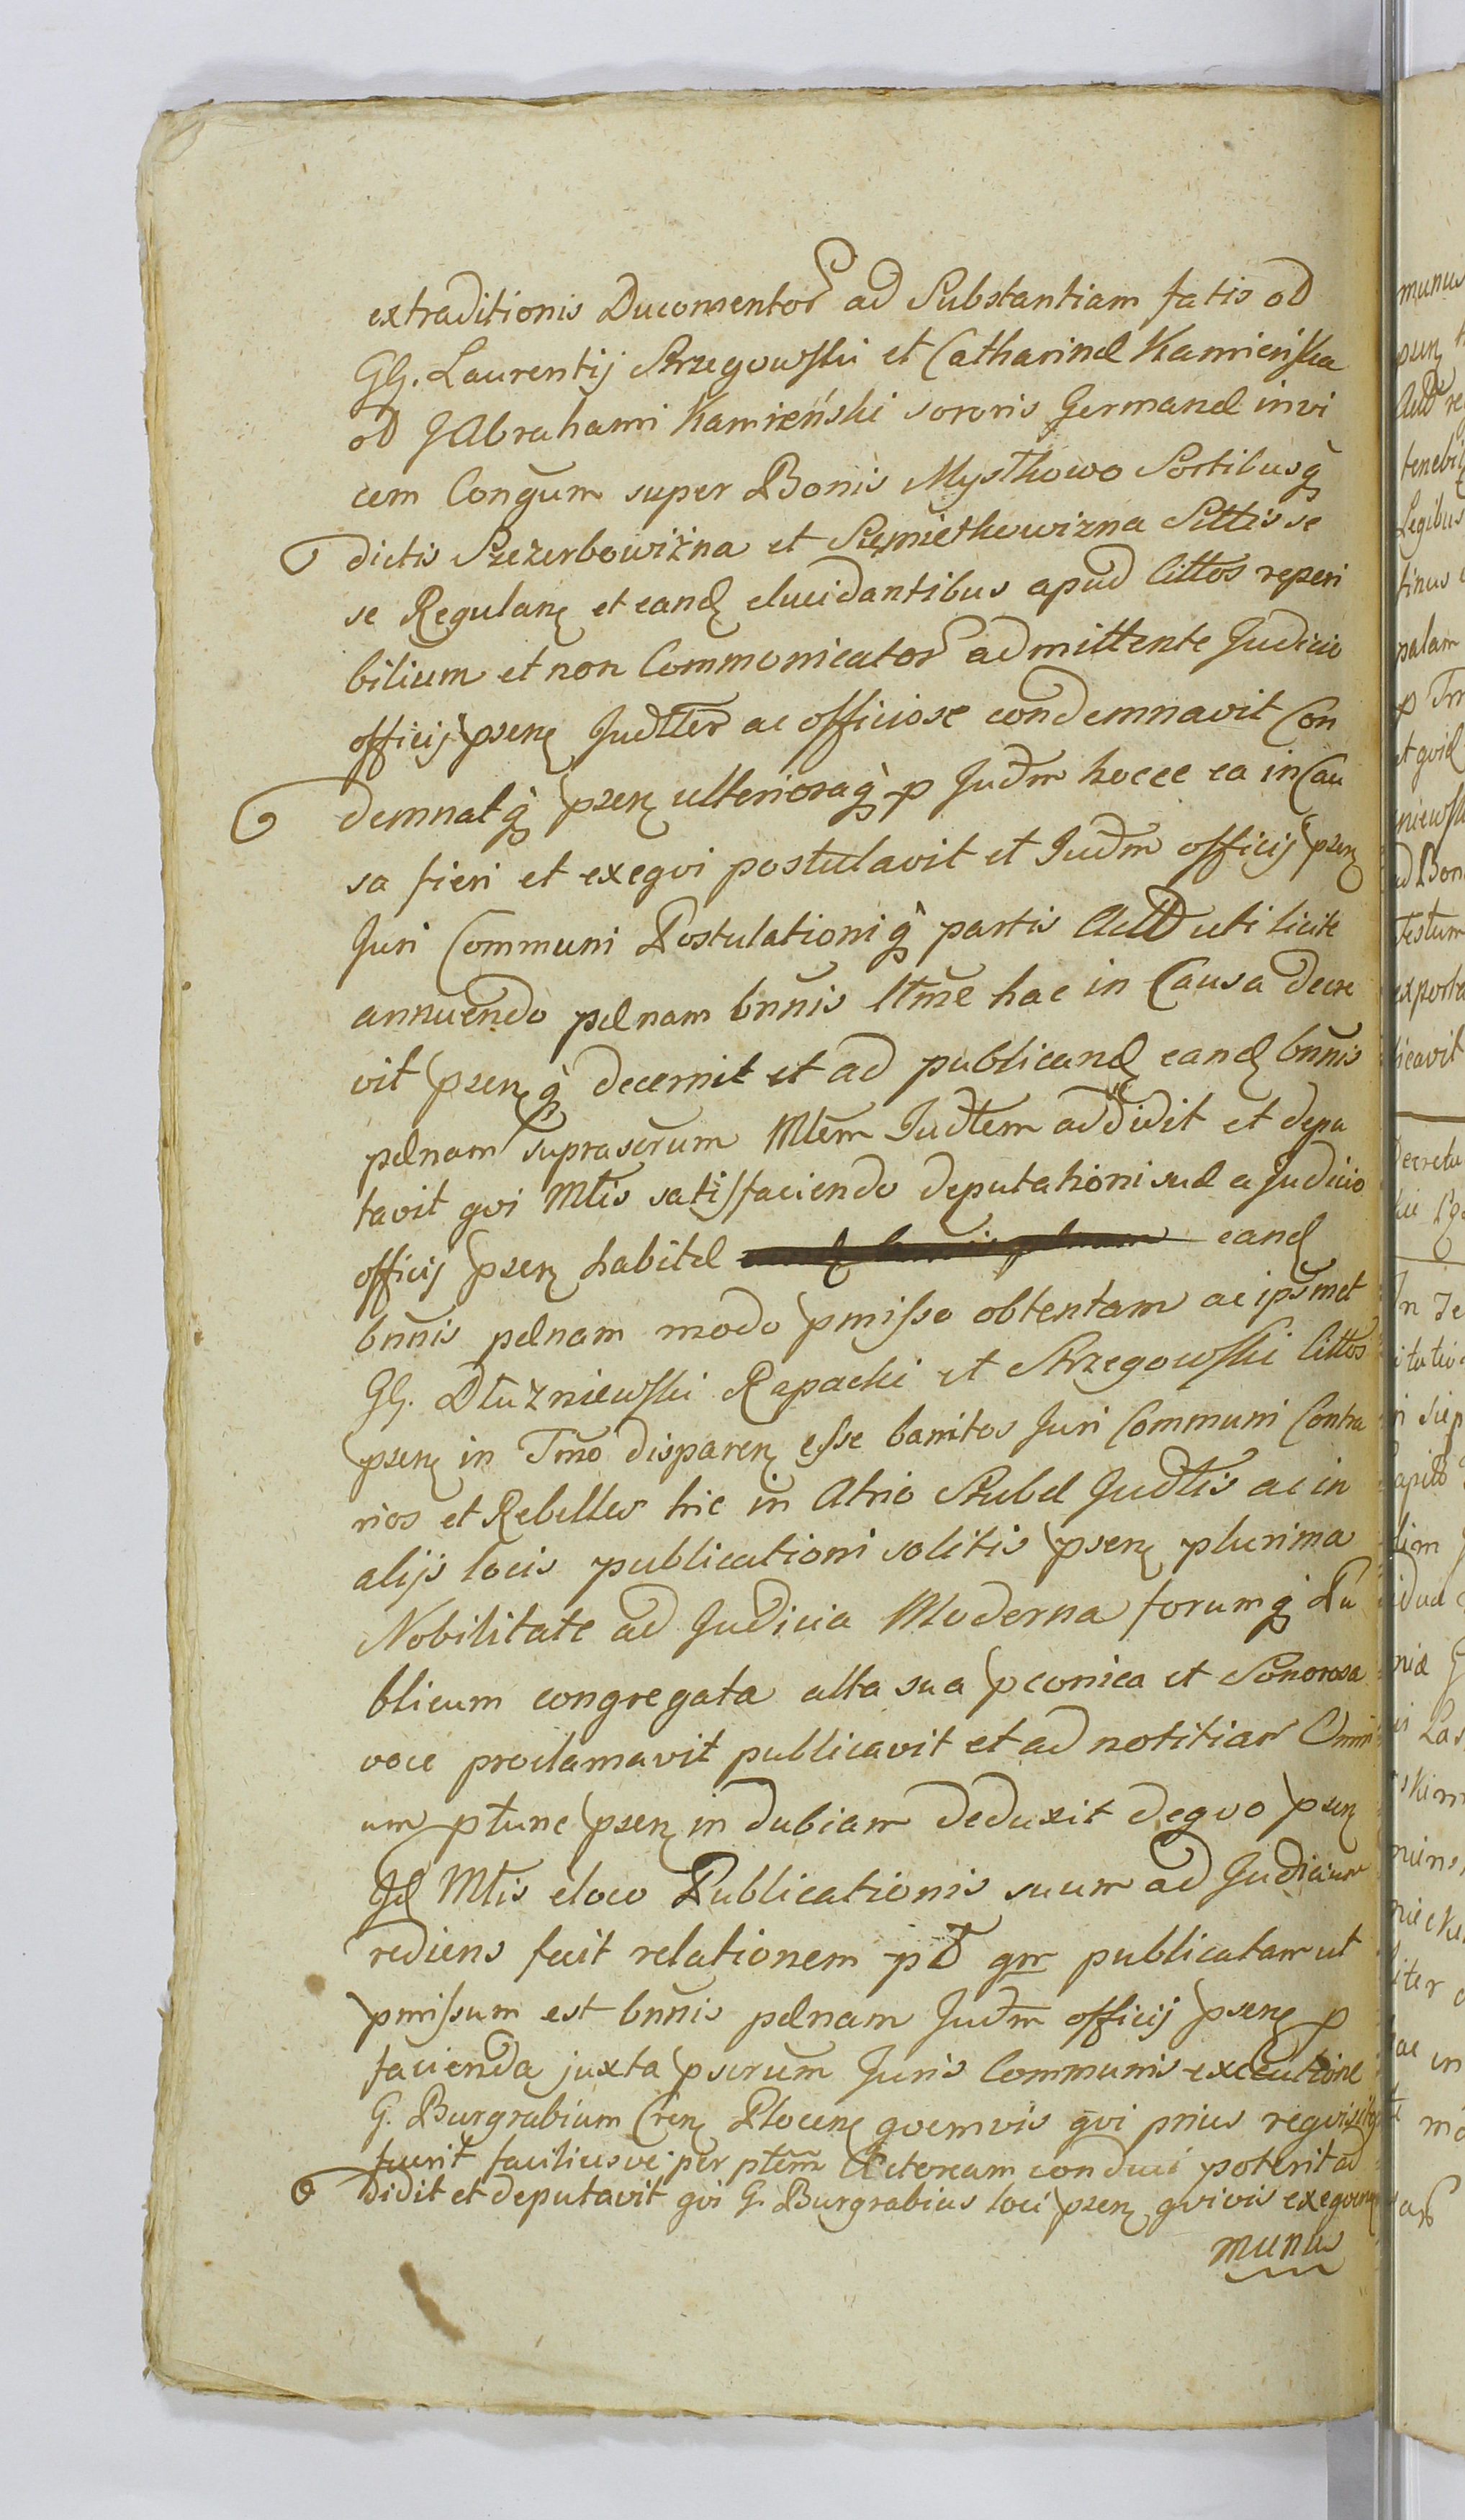 extraditionis Ducomentor ad Substantiam fatis od
GG. Laurentij Strzegowski et Catharinæ Kamieńska
od G Abrahami Kamieński sororis Germanæ invi
cem Congum super Bonis Mysłkowo Sortibusq
dictis Szczerbowizna et Siemiethowizna Sittis se
se Regulanꝫ et eandꝫ elucidantibus apud Cittos reperi
bilium et non Commonicator admittente Judicio
officij psenꝫ Judtter ac officiose condemnavit Con
demnatq psenꝫ ulterioraq p Judm hocce ea in Cau
sa fieri et exeqvi postulavit et Judm officij psenꝫ
Juri Communi Postulationiq partis Actt uti licite
annuendo pœnam bnnis Itme hac in Causa decre
vit psenꝫq decernit et ad publicandꝫ eandꝫ bnnis
pœnam suprascrum Mltem Judtem addidit et depu
tavit qvi Mltis satisfaciendo deputationi suæ a Judicio
officij psenꝫ habitæ eandꝫ
bnnis pœnam modo pmisso obtentam ac ipsmet
GG. Dłuzniewski Rapacki et Strzegowski Cittos
psenꝫ in Tmo disparenꝫ esse banitos Juri Communi Contra
rios et Rebelles hic in Atrio Stubæ Judtlis ac in
alijs locis publicationi solitis psenꝫ plurima
Nobilitate ad Judicia Moderna forumq Pu
blicum congregata alta sua pconica et Sonorosa
voce proclamavit publicavit et ad notitiam Omni
um ptunc psenꝫ in dubiam deduxit deqvo psenꝫ
Idꝫ Mltis eloco Publicationis suum ad Judicium
rediens fecit relationem p D gnr publicatam ut
pmissum est bnnis pœnam Judm officij psenꝫ p
facienda juxta pscrum Juris Communis executione
G. Burgrabium Crenꝫ Plocenꝫ qvemvis qvi prius reqvisitq
fuerit faciliusve per ptem Actoream conduci poterit ad
didit et deputavit qvi G. Burgrabius loci psenꝫ qvivis exeqvenꝫ
munus